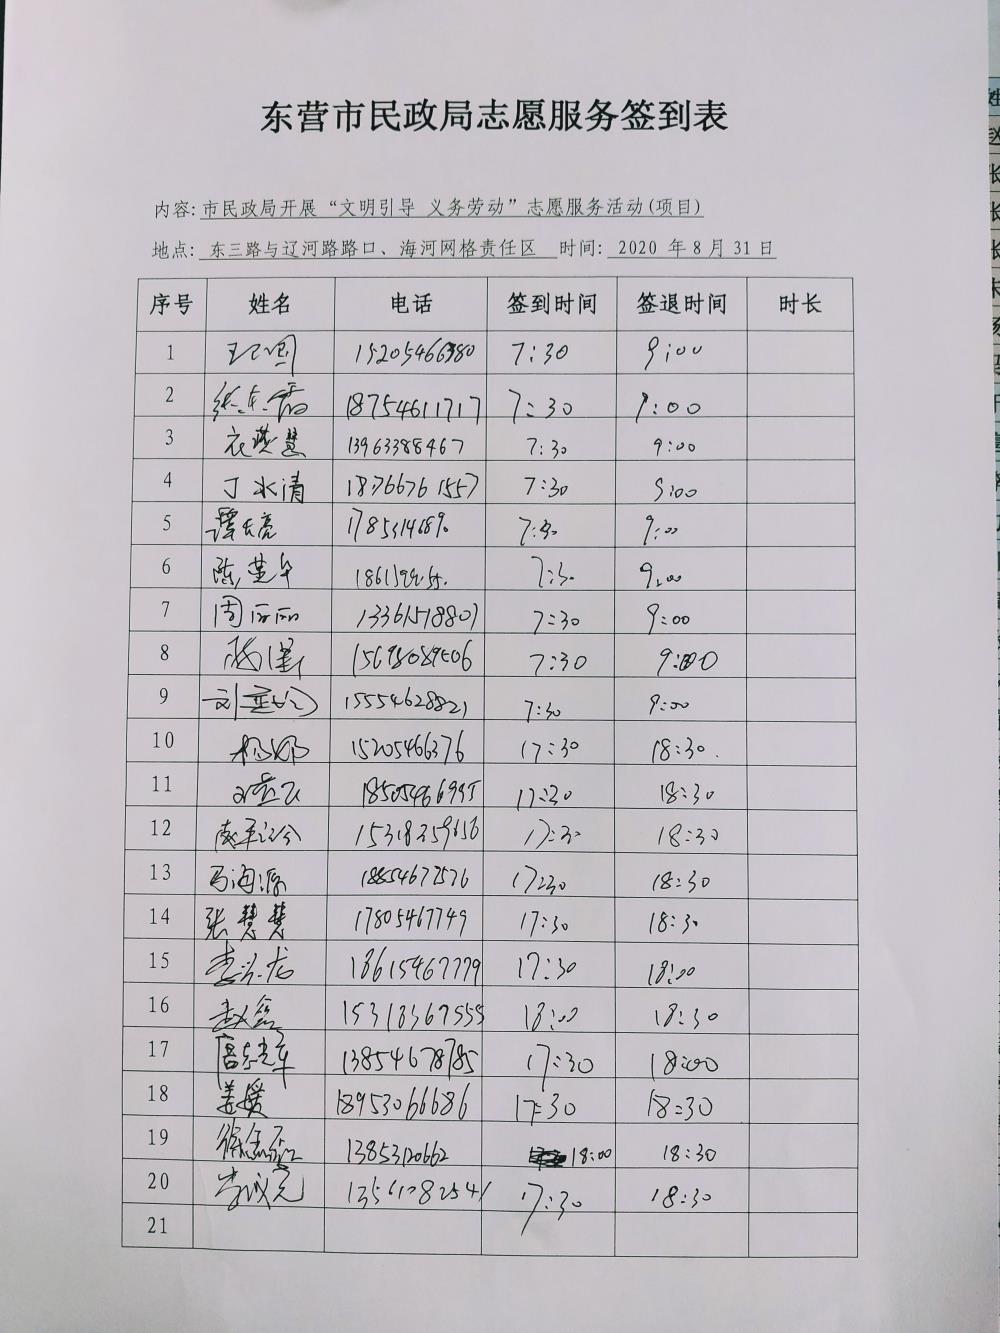 东营市民政局志愿服务签到表
内容:市民政局开展“文明引导 义务劳动”志愿服务活动(项目)
地点: 东三路与辽河路路口、海河网格责任区 时间: 2020 年 8 月 31 日
序号 姓名 电话 签到时间 签退时间 时长
1 15205466380 7:30 9:00
2 18754611717 7:30 9:00
3 衣燕慧 13963388467 7:30 9:00
4 丁水清 18766761557 7:30 9:00
5 谭长亮 7:30 9:00
6 陈莹华 7:30 9:00
7 周丽丽 13361518807 7:30 9:00
8 15698089506 7:30 9:00
9 15554628821 7:30 9:00
10 杨娜 15205466376 17:30 18:30
11 18505466995 17:30 18:30
12 15318359656 17:30 18:30
13 马海源 18854677576 17:30 18:30
14 张慧慧 17805467749 17:30 18:30
15 18615467779 17:30 18:00
16 赵磊 15318367555 18:00 18:30
17 13854678785 17:30 18:00
18 姜媛 18953066686 17:30 18:30
19 13853120662 18:00 18:30
20 17:30 18:30
21